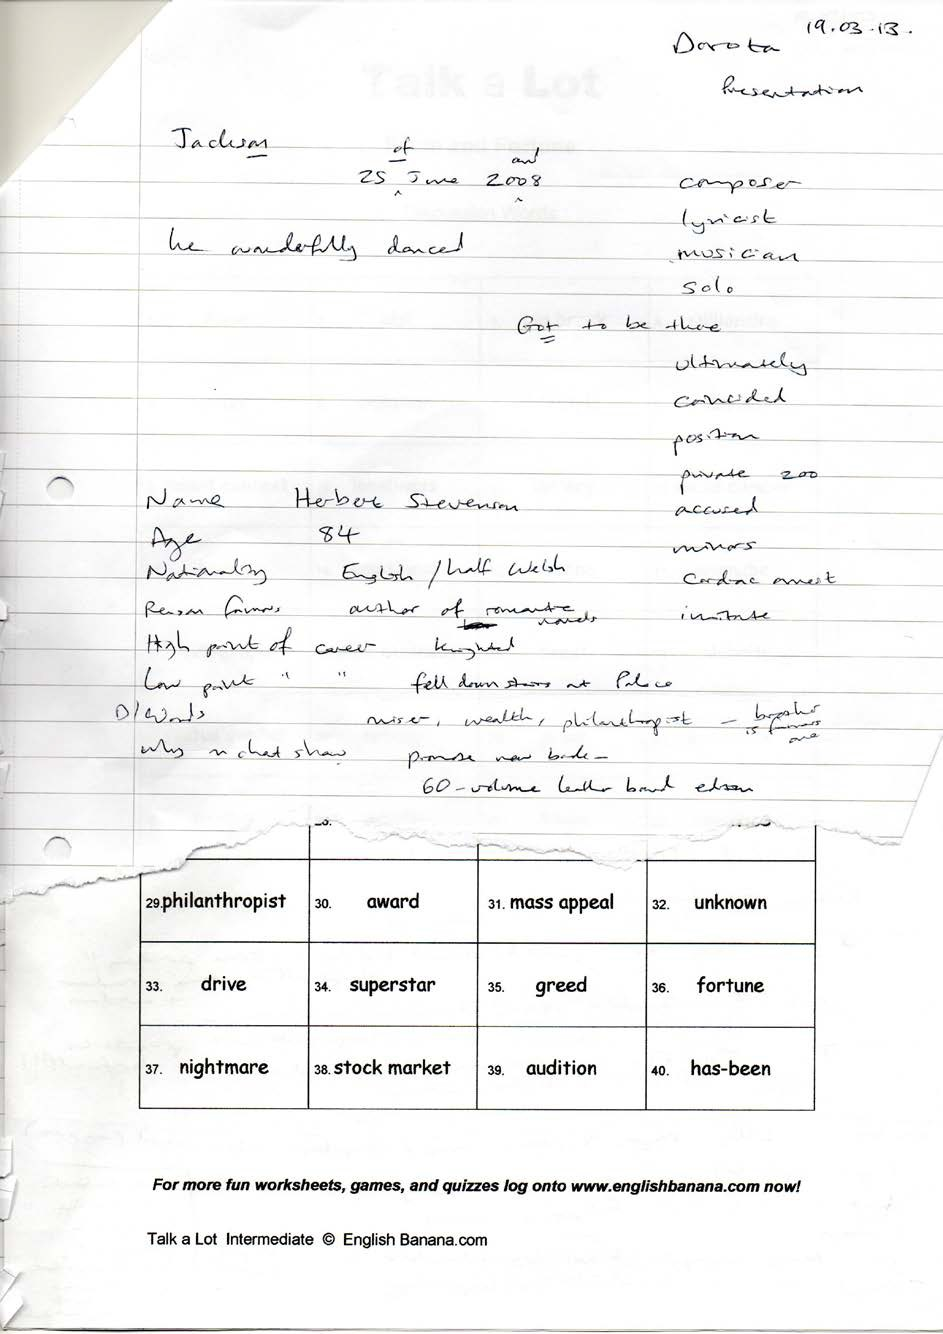 19.03.13.
Dorota
Presentation
Jackson
of and
25 June 2008
composer
lyricist
he wonderfully danced
musician
solo
Got to be there
ultimately
coincided
position
private 200
Name Herbert Stevenson
accused
Age 84
minors
Nationality English / half Welsh
cardiac arrest
Reason famous author of romantic novels
imitate
High point of career knighted
Low point " " fell down stairs at Palace
D/Words miser, wealth, philanthropist – brother is famous one
Why on chat show promote new book –
60-volume leather bound edition
29. philanthropist 30. award 31. mass appeal 32. unknown
33. drive 34. superstar 35. greed 36. fortune
37. nightmare 38. stock market 39. audition 40. has-been
For more fun worksheets, games, and quizzes log onto www.englishbanana.com now!
Talk a Lot Intermediate © English Banana.com